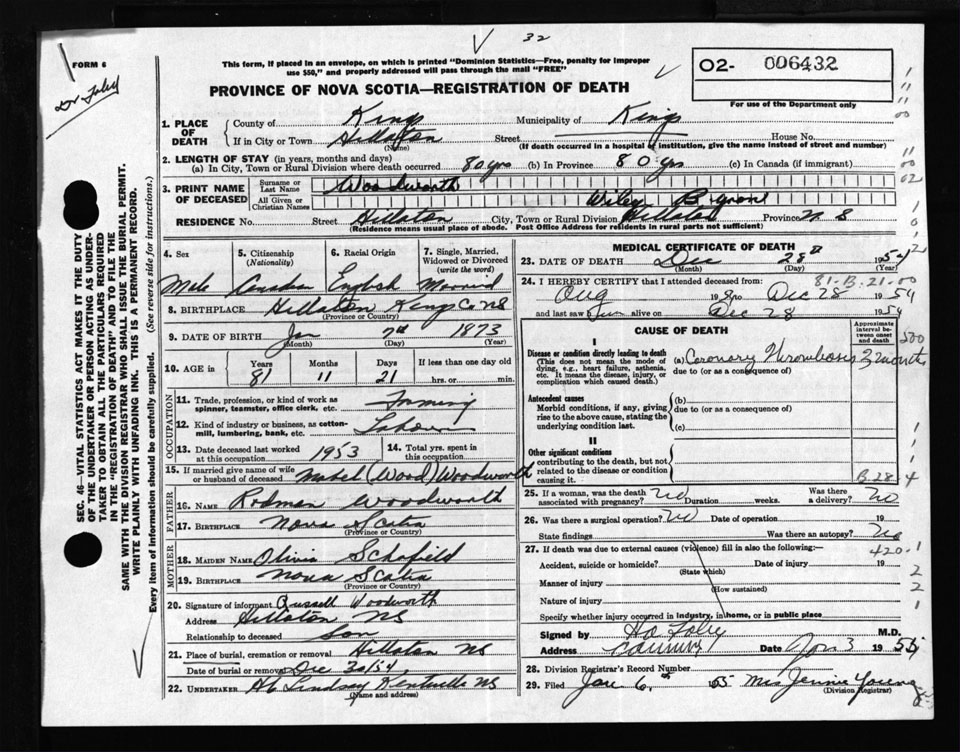 32
FORM 6
Dr Foley
This form, if placed in an envelope, on which is printed "Dominion Statistics—Free, penalty for improper
use $50," and properly addressed will pass through the mail "FREE"
O2- 006432
For use of the Department only
PROVINCE OF NOVA SCOTIA—REGISTRATION OF DEATH
1. PLACE OF DEATH County of Kings Municipality of Kings
If in City or Town Hillaton (Name) Street House No.
(If death occurred in a hospital or institution, give the name instead of street and number)
2. LENGTH OF STAY (in years, months and days)
(a) In City, Town or Rural Division where death occurred 80 yrs (b) In Province 80 yrs (c) In Canada (if immigrant)
3. PRINT NAME OF DECEASED Surname or Last Name Woodworth
All Given or Christian Names Wiley
RESIDENCE No. Street Hillaton City, Town or Rural Division Hillaton Province N S
(Residence means usual place of abode. Post Office Address for residents in rural parts not sufficient)
4. Sex Male
5. Citizenship (Nationality) Canadian
6. Racial Origin English
7. Single, Married, Widowed or Divorced (write the word) Married
8. BIRTHPLACE Hillaton Kings Co NS
(Province or Country)
9. DATE OF BIRTH Jan 7th 1873
(Month) (Day) (Year)
10. AGE in Years 81 Months 11 Days 21 If less than one day old
hrs. or min.
OCCUPATION
11. Trade, profession or kind of work as spinner, teamster, office clerk, etc. Farming
12. Kind of industry or business, as cotton-mill, lumbering, bank, etc. Labour
13. Date deceased last worked at this occupation 1953
14. Total yrs. spent in this occupation
15. If married give name of wife or husband of deceased Mabel (Wood) Woodworth
FATHER
16. Name Rodman Woodworth
17. BIRTHPLACE Nova Scotia
(Province or Country)
MOTHER
18. MAIDEN NAME Olivia Schofield
19. BIRTHPLACE Nova Scotia
(Province or Country)
20. Signature of informant Russell Woodworth
Address Hillaton NS
Relationship to deceased Son
21. Place of burial, cremation or removal Hillaton NS
Date of burial or removal Dec 30/54
22. UNDERTAKER Lindsay Kentville NS
(Name and address)
MEDICAL CERTIFICATE OF DEATH
23. DATE OF DEATH Dec 28th 1954
(Month) (Day) (Year)
81-B.21-00
24. I HEREBY CERTIFY that I attended deceased from
Aug 19 to Dec 28 1954
and last saw him alive on Dec 28 1954
CAUSE OF DEATH
Approximate interval between onset and death
I
Disease or condition directly leading to death
(This does not mean the mode of dying, e.g., heart failure, asthenia, etc. It means the disease, injury, or complication which caused death.)
(a) Coronary Thrombosis
due to (or as a consequence of)
Antecedent causes
Morbid conditions, if any, giving rise to the above cause, stating the underlying condition last.
(b)
due to (or as a consequence of)
(c)
II
Other significant conditions
contributing to the death, but not related to the disease or condition causing it.
B.28
25. If a woman, was the death associated with pregnancy? No Duration weeks. Was there a delivery? No
26. Was there a surgical operation? No Date of operation 19
State findings Was there an autopsy? No
27. If death was due to external causes (violence) fill in also the following:— 420-1
Accident, suicide or homicide? Date of injury 19
(State which)
Manner of injury
(How sustained)
Nature of injury
Specify whether injury occurred in industry, in home, or in public place
Signed by Foley M.D.
Address Canning Date Jan 3 1955
28. Division Registrar's Record Number
29. Filed Jan 6th 1955 Mrs Jennie Young
(Division Registrar)
SEC. 46—VITAL STATISTICS ACT MAKES IT THE DUTY
OF THE UNDERTAKER OR PERSON ACTING AS UNDER-
TAKER TO OBTAIN ALL THE PARTICULARS REQUIRED
IN THE "REGISTRATION OF DEATH" AND TO FILE THE
SAME WITH THE DIVISION REGISTRAR WHO SHALL ISSUE THE BURIAL PERMIT.
WRITE PLAINLY WITH UNFADING INK. THIS IS A PERMANENT RECORD.
Every item of information should be carefully supplied. (See reverse side for instructions.)